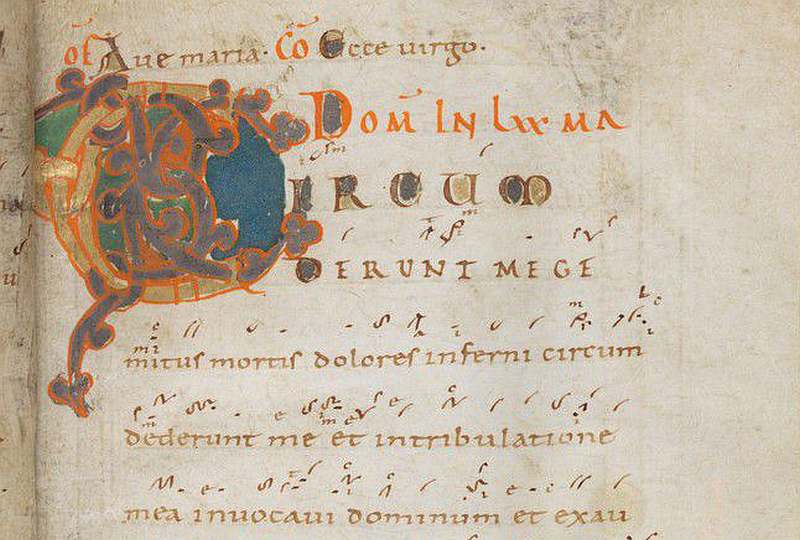 oƒ Aue maria. Cō Ecce uirgo.
DOM̄ IN LXXMA
CIRCUM
DERUNT ME GE
mitus mortis dolores inferni circum
dederunt me et intribulatione
mea inuocaui dominum et exau